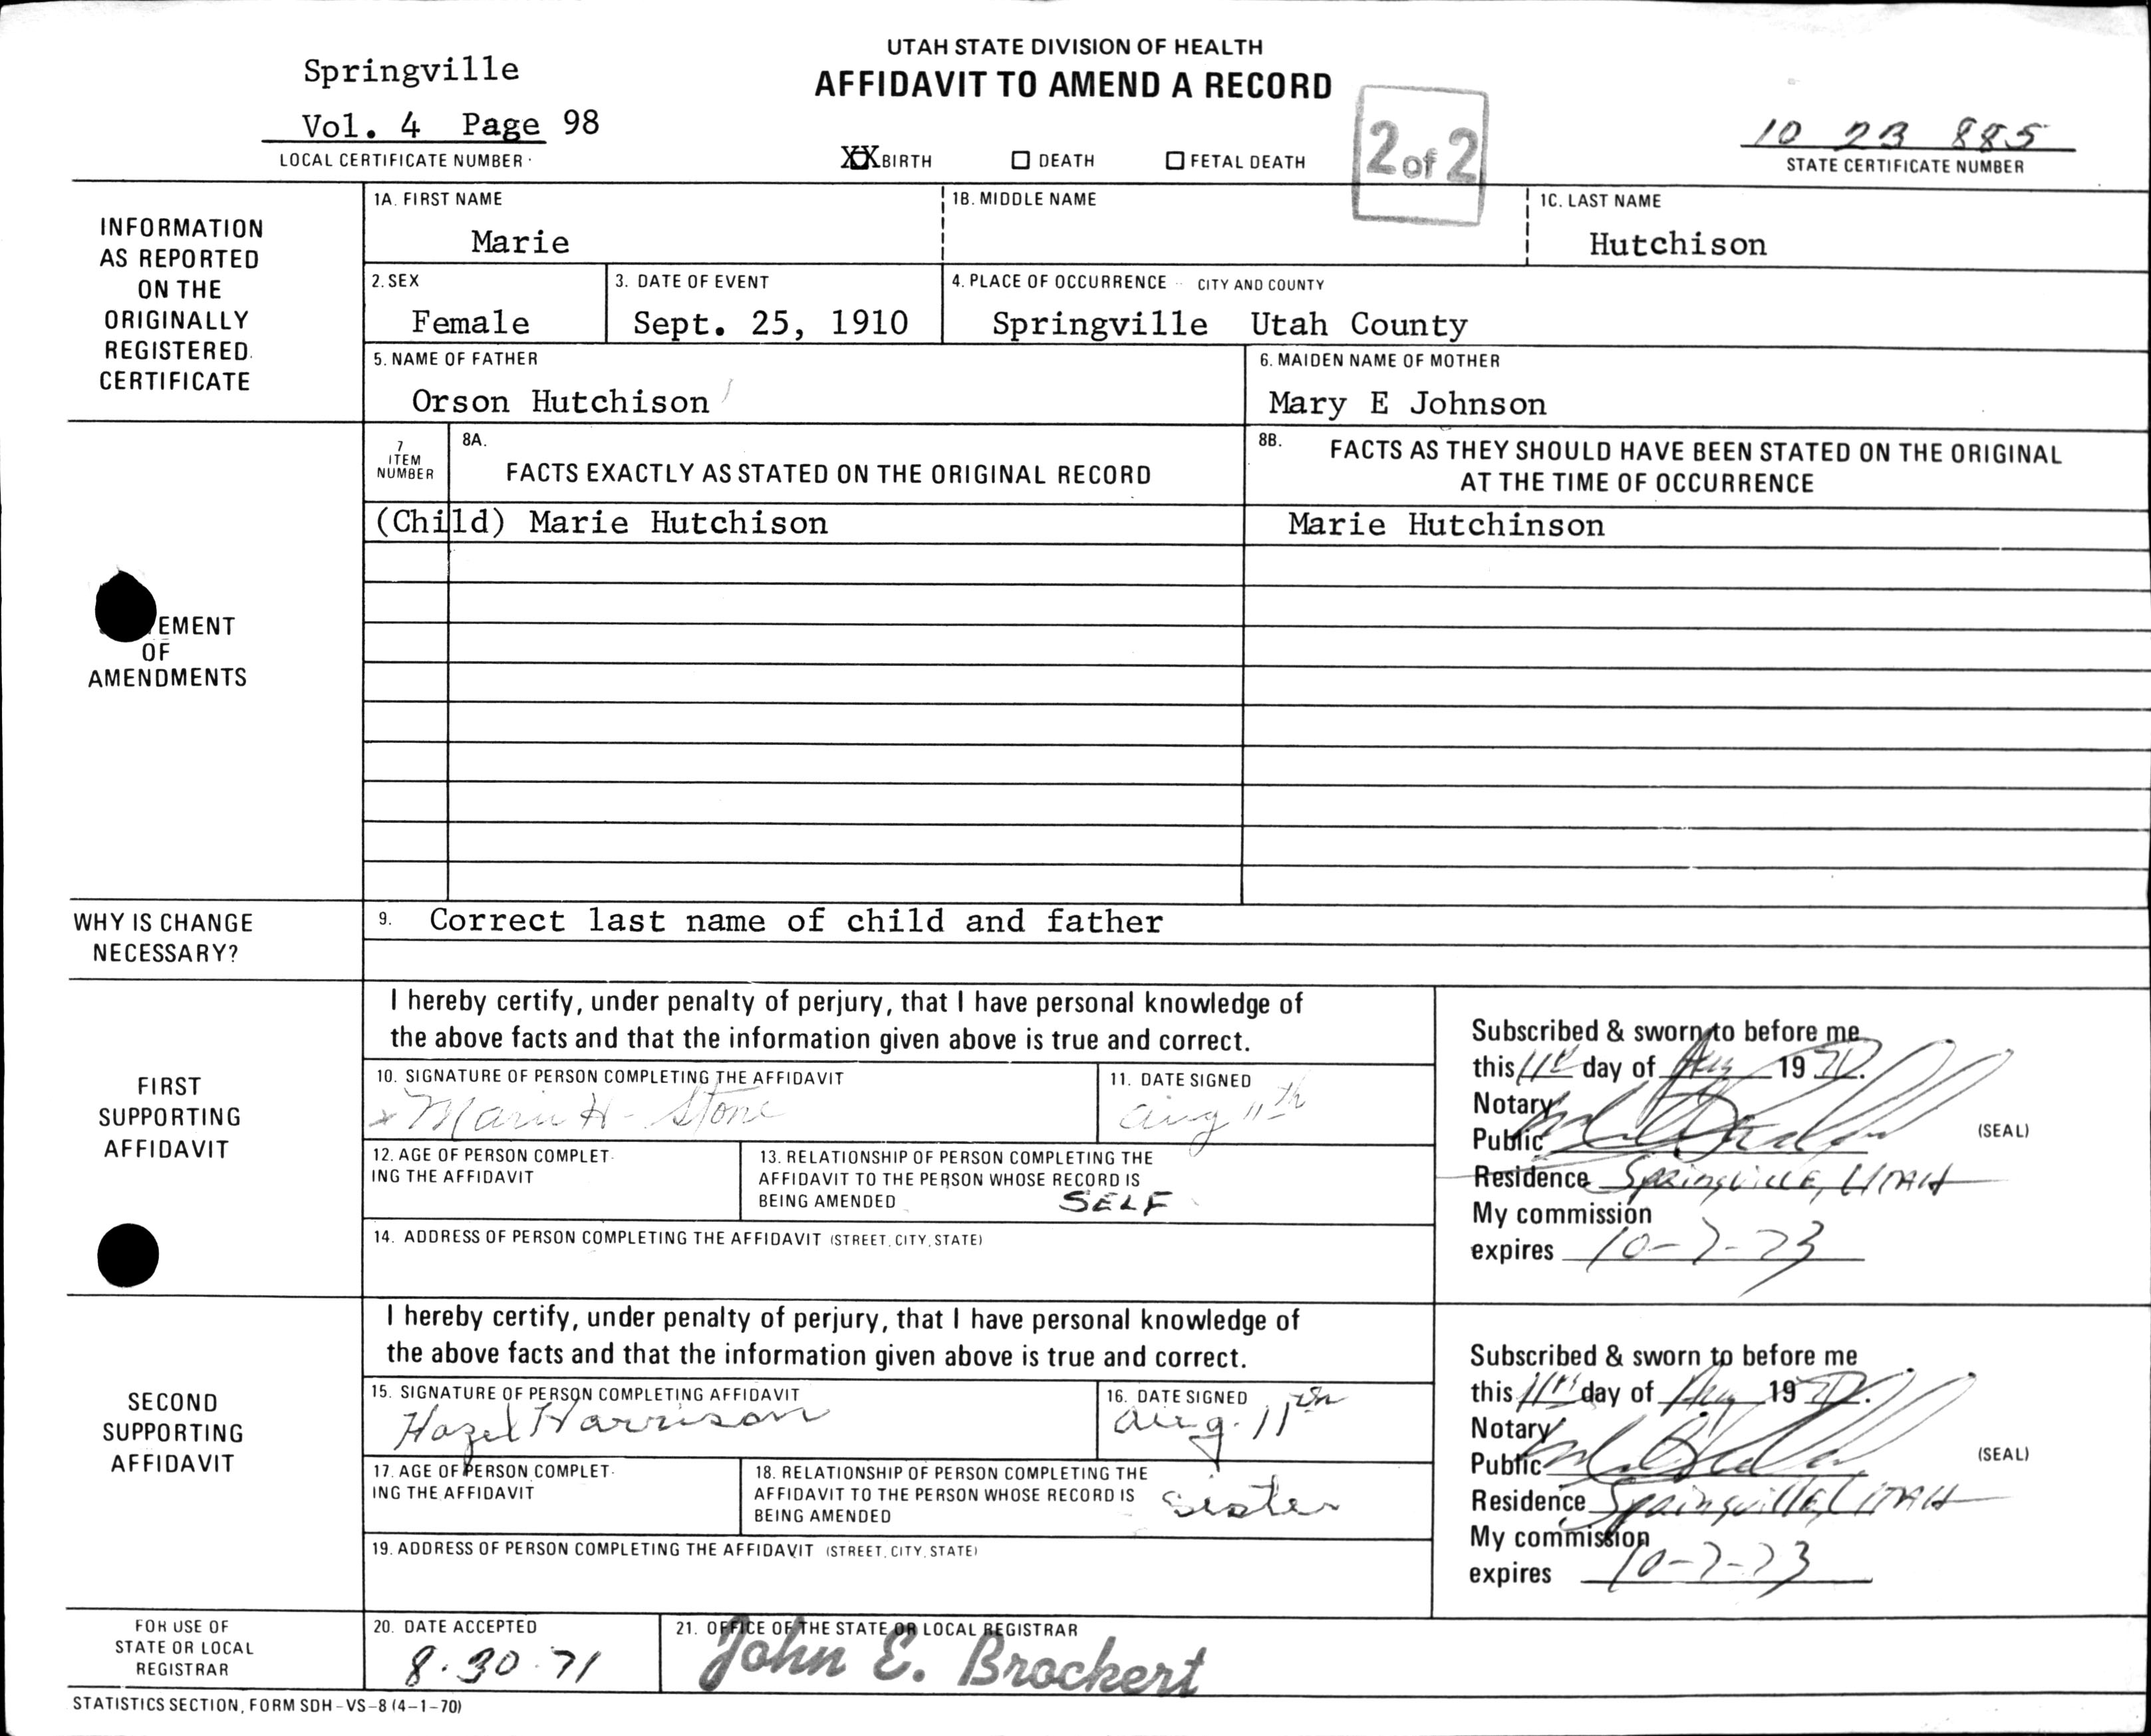 UTAH STATE DIVISION OF HEALTH
AFFIDAVIT TO AMEND A RECORD
Springville
Vol. 4 Page 98
LOCAL CERTIFICATE NUMBER
XX BIRTH ☐ DEATH ☐ FETAL DEATH
2 of 2
10 23 885
STATE CERTIFICATE NUMBER
INFORMATION
AS REPORTED
ON THE
ORIGINALLY
REGISTERED
CERTIFICATE
1A. FIRST NAME
Marie
1B. MIDDLE NAME
1C. LAST NAME
Hutchison
2. SEX
Female
3. DATE OF EVENT
Sept. 25, 1910
4. PLACE OF OCCURRENCE CITY AND COUNTY
Springville Utah County
5. NAME OF FATHER
Orson Hutchison
6. MAIDEN NAME OF MOTHER
Mary E Johnson
EMENT
OF
AMENDMENTS
7
ITEM
NUMBER
8A.
FACTS EXACTLY AS STATED ON THE ORIGINAL RECORD
8B. FACTS AS THEY SHOULD HAVE BEEN STATED ON THE ORIGINAL
AT THE TIME OF OCCURRENCE
(Child) Marie Hutchison
Marie Hutchinson
WHY IS CHANGE
NECESSARY?
9. Correct last name of child and father
FIRST
SUPPORTING
AFFIDAVIT
I hereby certify, under penalty of perjury, that I have personal knowledge of
the above facts and that the information given above is true and correct.
10. SIGNATURE OF PERSON COMPLETING THE AFFIDAVIT
x Marie H. Stone
11. DATE SIGNED
Aug 11th
12. AGE OF PERSON COMPLET-
ING THE AFFIDAVIT
13. RELATIONSHIP OF PERSON COMPLETING THE
AFFIDAVIT TO THE PERSON WHOSE RECORD IS
BEING AMENDED SELF
14. ADDRESS OF PERSON COMPLETING THE AFFIDAVIT (STREET, CITY, STATE)
Subscribed & sworn to before me
this 11th day of Aug 19 71.
Notary
Public
(SEAL)
Residence Springville, UTAH
My commission
expires 10-7-73
SECOND
SUPPORTING
AFFIDAVIT
I hereby certify, under penalty of perjury, that I have personal knowledge of
the above facts and that the information given above is true and correct.
15. SIGNATURE OF PERSON COMPLETING AFFIDAVIT
Hazel Harrison
16. DATE SIGNED
Aug. 11th
17. AGE OF PERSON COMPLET-
ING THE AFFIDAVIT
18. RELATIONSHIP OF PERSON COMPLETING THE
AFFIDAVIT TO THE PERSON WHOSE RECORD IS
BEING AMENDED
Sister
19. ADDRESS OF PERSON COMPLETING THE AFFIDAVIT (STREET, CITY, STATE)
Subscribed & sworn to before me
this 11th day of Aug 19 71.
Notary
Public
(SEAL)
Residence Springville, UTAH
My commission
expires 10-7-73
FOR USE OF
STATE OR LOCAL
REGISTRAR
20. DATE ACCEPTED
8.30.71
21. OFFICE OF THE STATE OR LOCAL REGISTRAR
John E. Brockert
STATISTICS SECTION, FORM SDH-VS-8 (4-1-70)